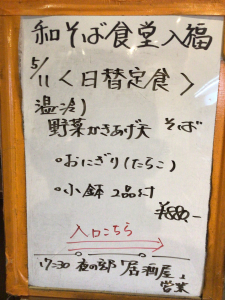 和そば食堂入福
5/11 〈日替定食〉
温冷)
野菜かきあげ天 そば
・おにぎり(たらこ)
・小鉢 2品付
¥880-
入口こちら
17:30 夜の部 居酒屋
営業